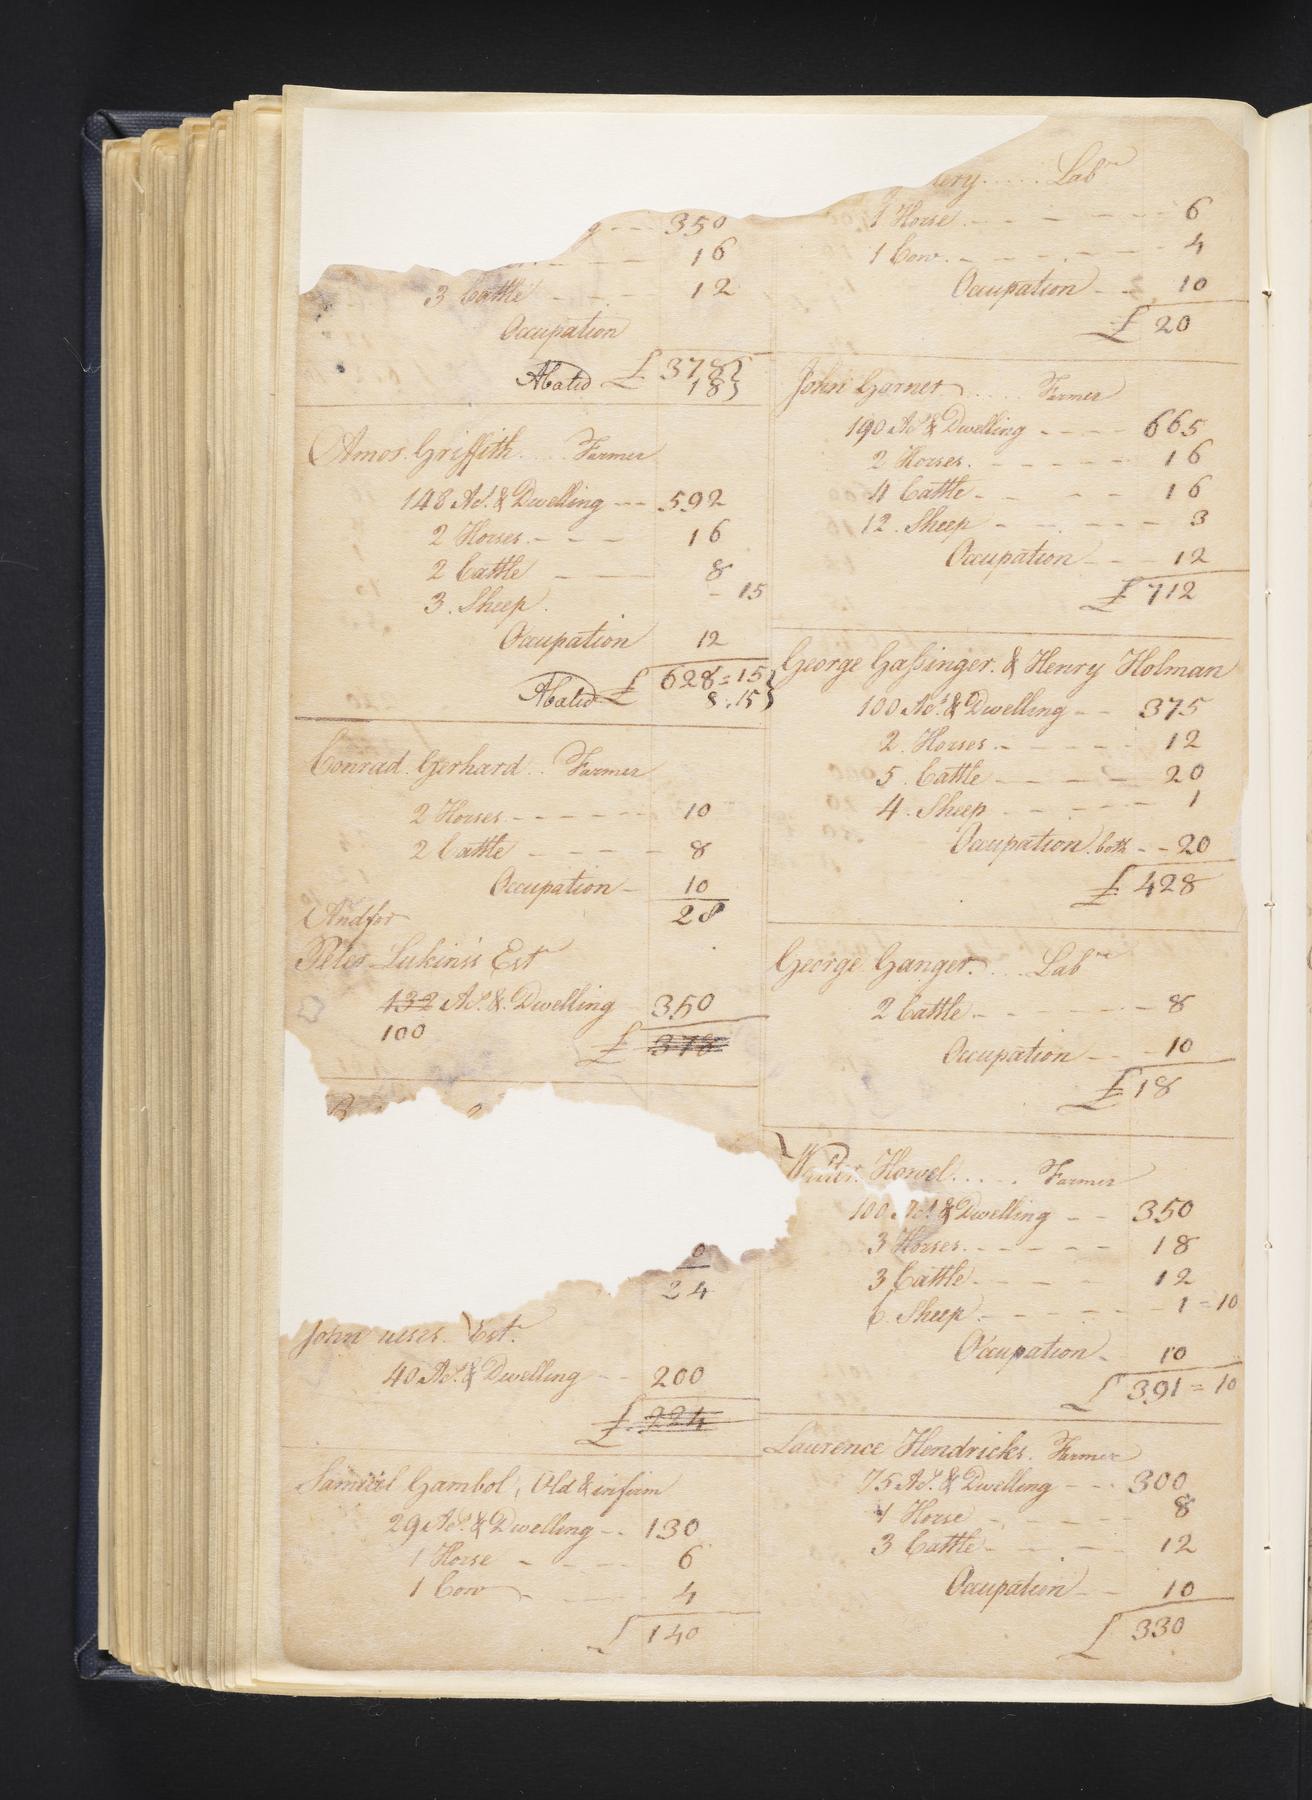 350
16
3 Cattle 12
Occupation
£ 378
Abated 18
Amos Griffith .... Farmer
148 As. & Dwelling --- 592
2 Horses - - - 16
2 Cattle - - 8
3. Sheep. - 15
Occupation 12
£ 628 = 15
Abated 8. 15
Conrad Gerhard .. Farmer
2 Horses - - - - - 10
2 Cattle - - - - 8
Occupation - 10
28
And for
Peter Lukins's Est
132 As. & Dwelling 350
100
£ 378
0
24
John Est.
40 As. & Dwelling - - 200
£ 224
Samuel Gambol, Old & infirm
29 As. & Dwelling - - 130
1 Horse - - - - 6
1 Cow - - - 4
£ 140
ery ..... Labr
1 Horse - - - - 6
1 Cow. - - - - 4
Occupation - - 10
£ 20
John Garner ..... Farmer
190 As. & Dwelling - - - - 665
2 Horses. - - - - - 16
4 Cattle - - - - 16
12. Sheep - - - - - 3
Occupation - - - 12
£ 712
George Gaſsinger. & Henry Holman
100 As. & Dwelling - - 375
2. Horses - - - - - 12
5. Cattle - - - - 20
4. Sheep - - - - 1
Occupation. both - - 20
£ 428
George Ganger. .... Labr
2 Cattle - - - - - 8
Occupation - - - 10
£ 18
Howel ..... Farmer
100 As. & Dwelling - - 350
3 Horses. - - - - - 18
3 Cattle - - - - 12
6. Sheep - - - - - 1 = 10
Occupation - 10
£ 391 = 10
Laurence Hendricks. Farmer
75 As. & Dwelling - - - 300
1 Horse - - - - 8
3 Cattle - - - - 12
Occupation - - 10
£ 330